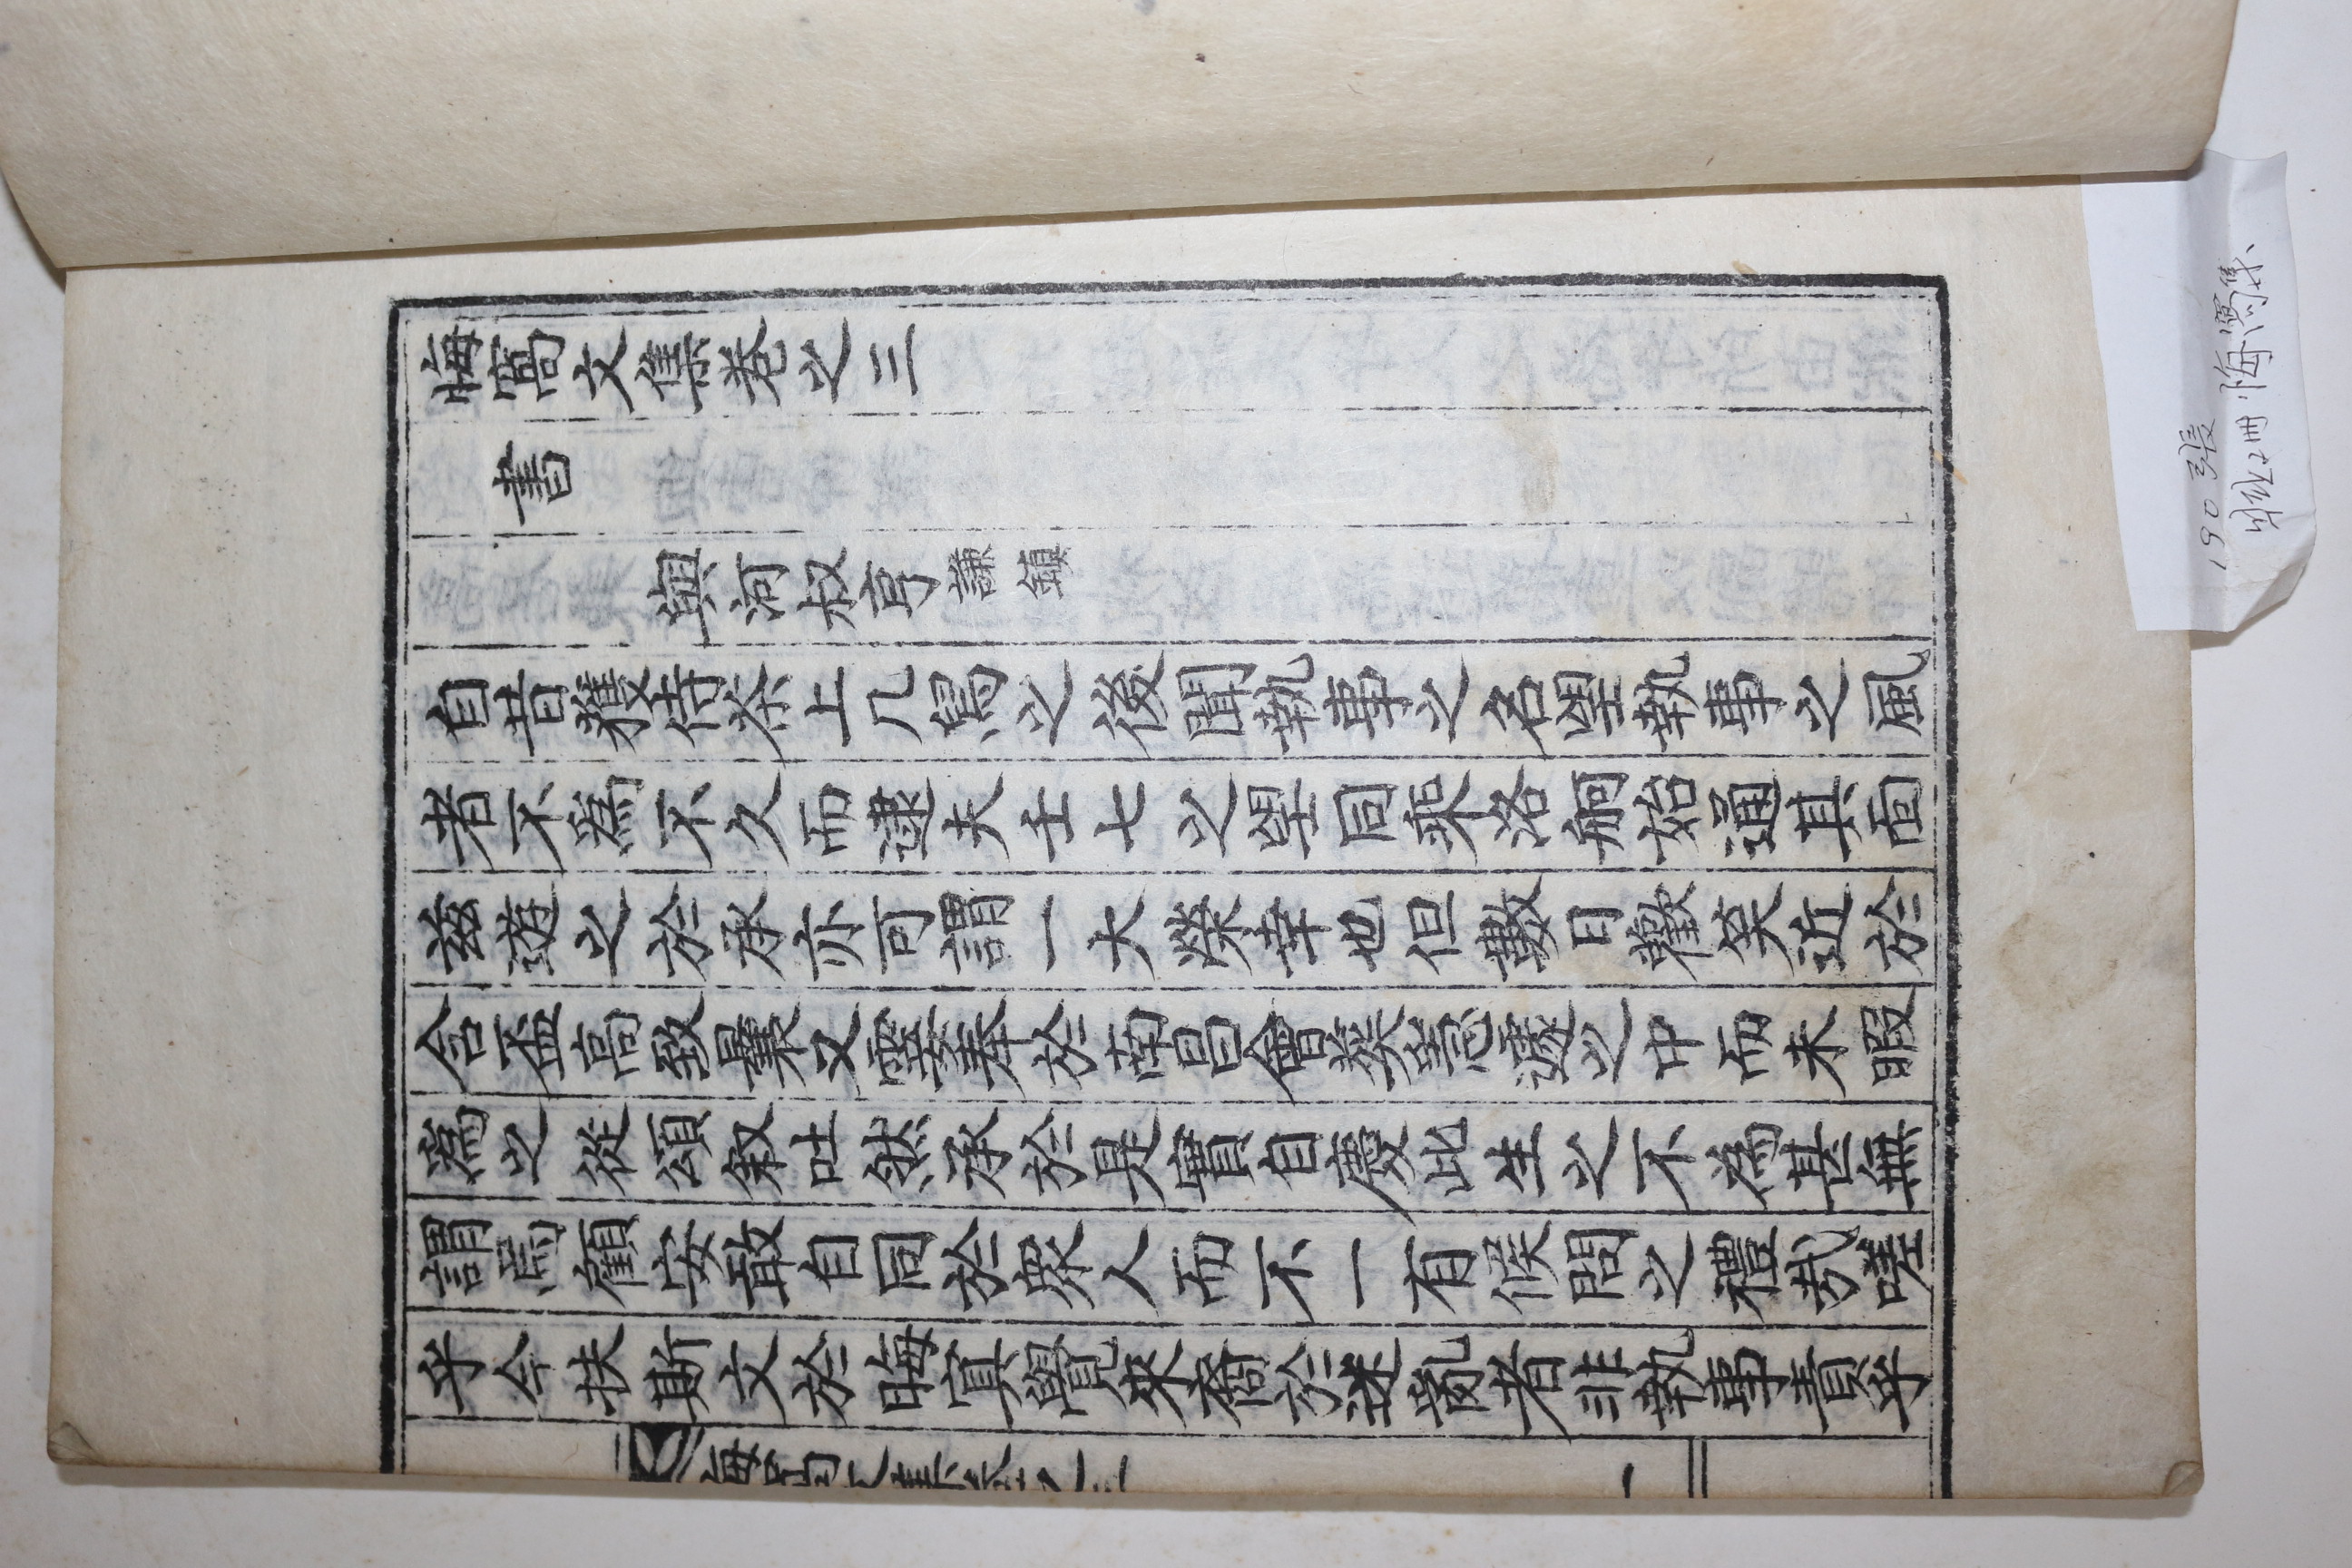 悔窩文集卷之三
書
與河叔亨謙鎮
自昔獲侍茶上几舄之後聞執事之名望執事之風
者不爲不久而逮夫壬七之望同乘洛舸始通其面
玆遊之於承亦可謂一大榮幸也但數日歡笑近於
含盃高致曩又霎奉於南昌會葬怱遽之中而未暇
爲之從頌叙吐然承於是實自慶此生之不為甚無
謂焉顧安敢自同於衆人而不一有候問之禮哉嗟
乎今扶斯文於晦寘覺來裔於迷亂者非執事責乎
悔窩文集卷之三
一
190張
2冊 悔窩集